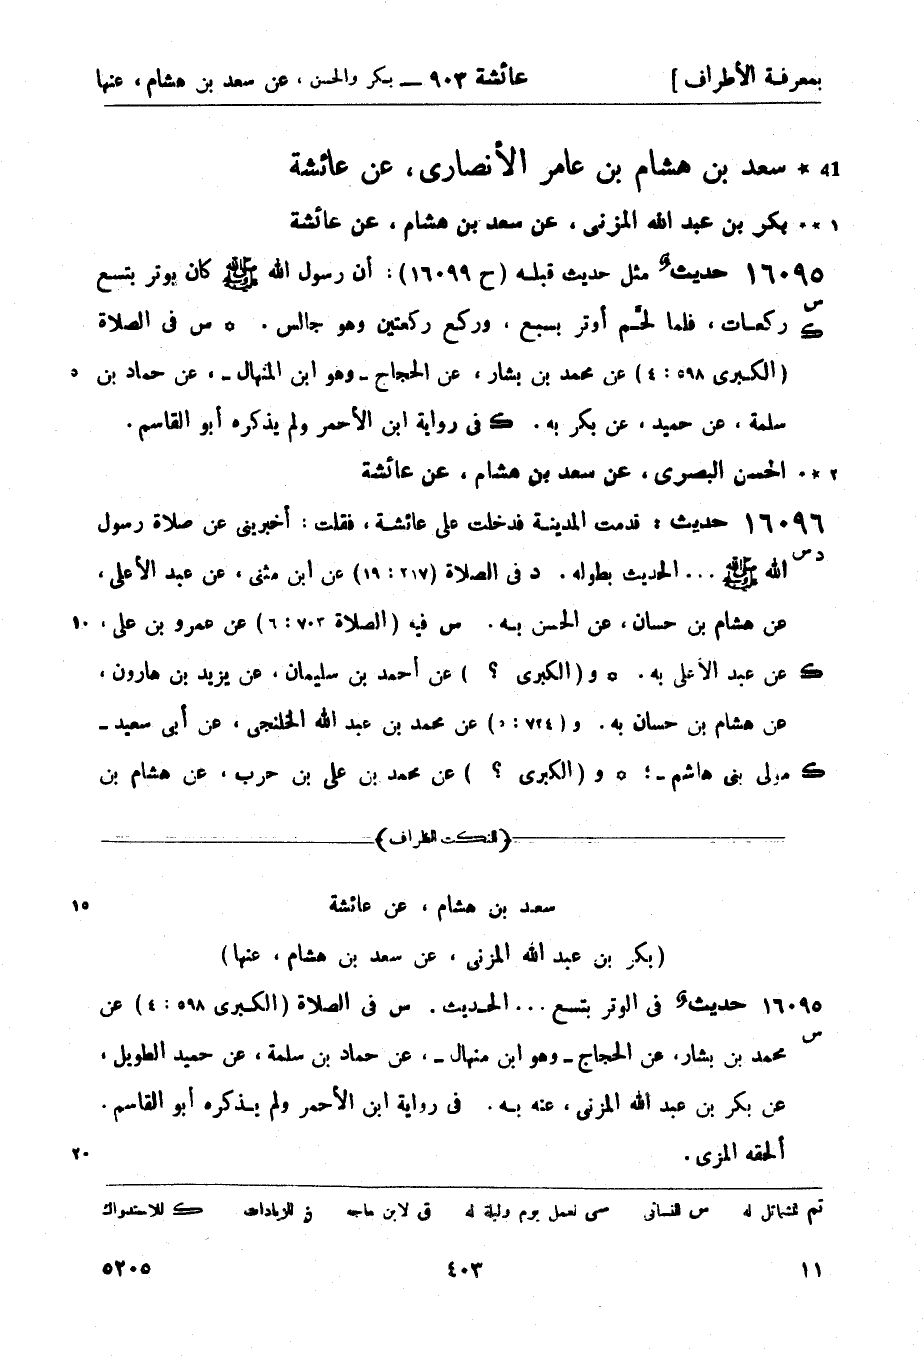 بمعرفة الأطراف] عائشة ٩٠٣ ــ بكر والحسن، عن سعد بن هشام، عنها
41 * سعد بن هشام بن عامر الأنصارى، عن عائشة
١ ** بكر بن عبد الله المزنى، عن سعد بن هشام، عن عائشة
١٦٠٩٥ حديث مثل حديث قبله (ح ١٦٠٩٩): أن رسول الله ﷺ كان يوتر بتسع
س ك ركعات، فلما لحُم أوتر بسبع، وركع ركعتين وهو جالس. * س فى الصلاة
(الكبرى ٥٩٨ : ٤) عن محمد بن بشار، عن الحجاج ـ وهو ابن المنهال ـ، عن حماد بن ٥
سلمة، عن حميد، عن بكر به. ك فى رواية ابن الأحمر ولم يذكره أبو القاسم.
٢ ** الحسن البصرى، عن سعد بن هشام، عن عائشة
١٦٠٩٦ حديث : قدمت المدينة فدخلت على عائشة، فقلت: أخبرينى عن صلاة رسول
د س الله ﷺ ... الحديث بطوله. د فى الصلاة (٢١٧ : ١٩) عن ابن مثنى، عن عبد الأعلى،
عن هشام بن حسان، عن الحسن به. س فيه (الصلاة ٧٠٢ : ٦) عن عمرو بن على، ١٠
ك عن عبد الأعلى به. * و (الكبرى ؟ ) عن أحمد بن سليمان، عن يزيد بن هارون،
عن هشام بن حسان به. و (٧٢٤ : ٥) عن محمد بن عبد الله الخلنجى، عن أبى سعيد ـ
ك مولى بنى هاشم ـ؛ * و (الكبرى ؟ ) عن محمد بن على بن حرب، عن هشام بن
(النكت الظراف)
سعد بن هشام، عن عائشة ١٥
(بكر بن عبد الله المزنى، عن سعد بن هشام، عنها)
١٦٠٩٥ حديث فى الوتر بتسع ... الحديث. س فى الصلاة (الكبرى ٥٩٨ : ٤) عن
س محمد بن بشار، عن الحجاج ـ وهو ابن منهال ـ، عن حماد بن سلمة، عن حميد الطويل،
عن بكر بن عبد الله المزنى، عنه به. فى رواية ابن الأحمر ولم يذكره أبو القاسم.
ألحقه المزى. ٢٠
تم للشمائل له س للنسائى سى لعمل يوم وليلة له ق لابن ماجه ز للزيادات ك للاستدراك
١١ ٤٠٣ ٥٢٠٥